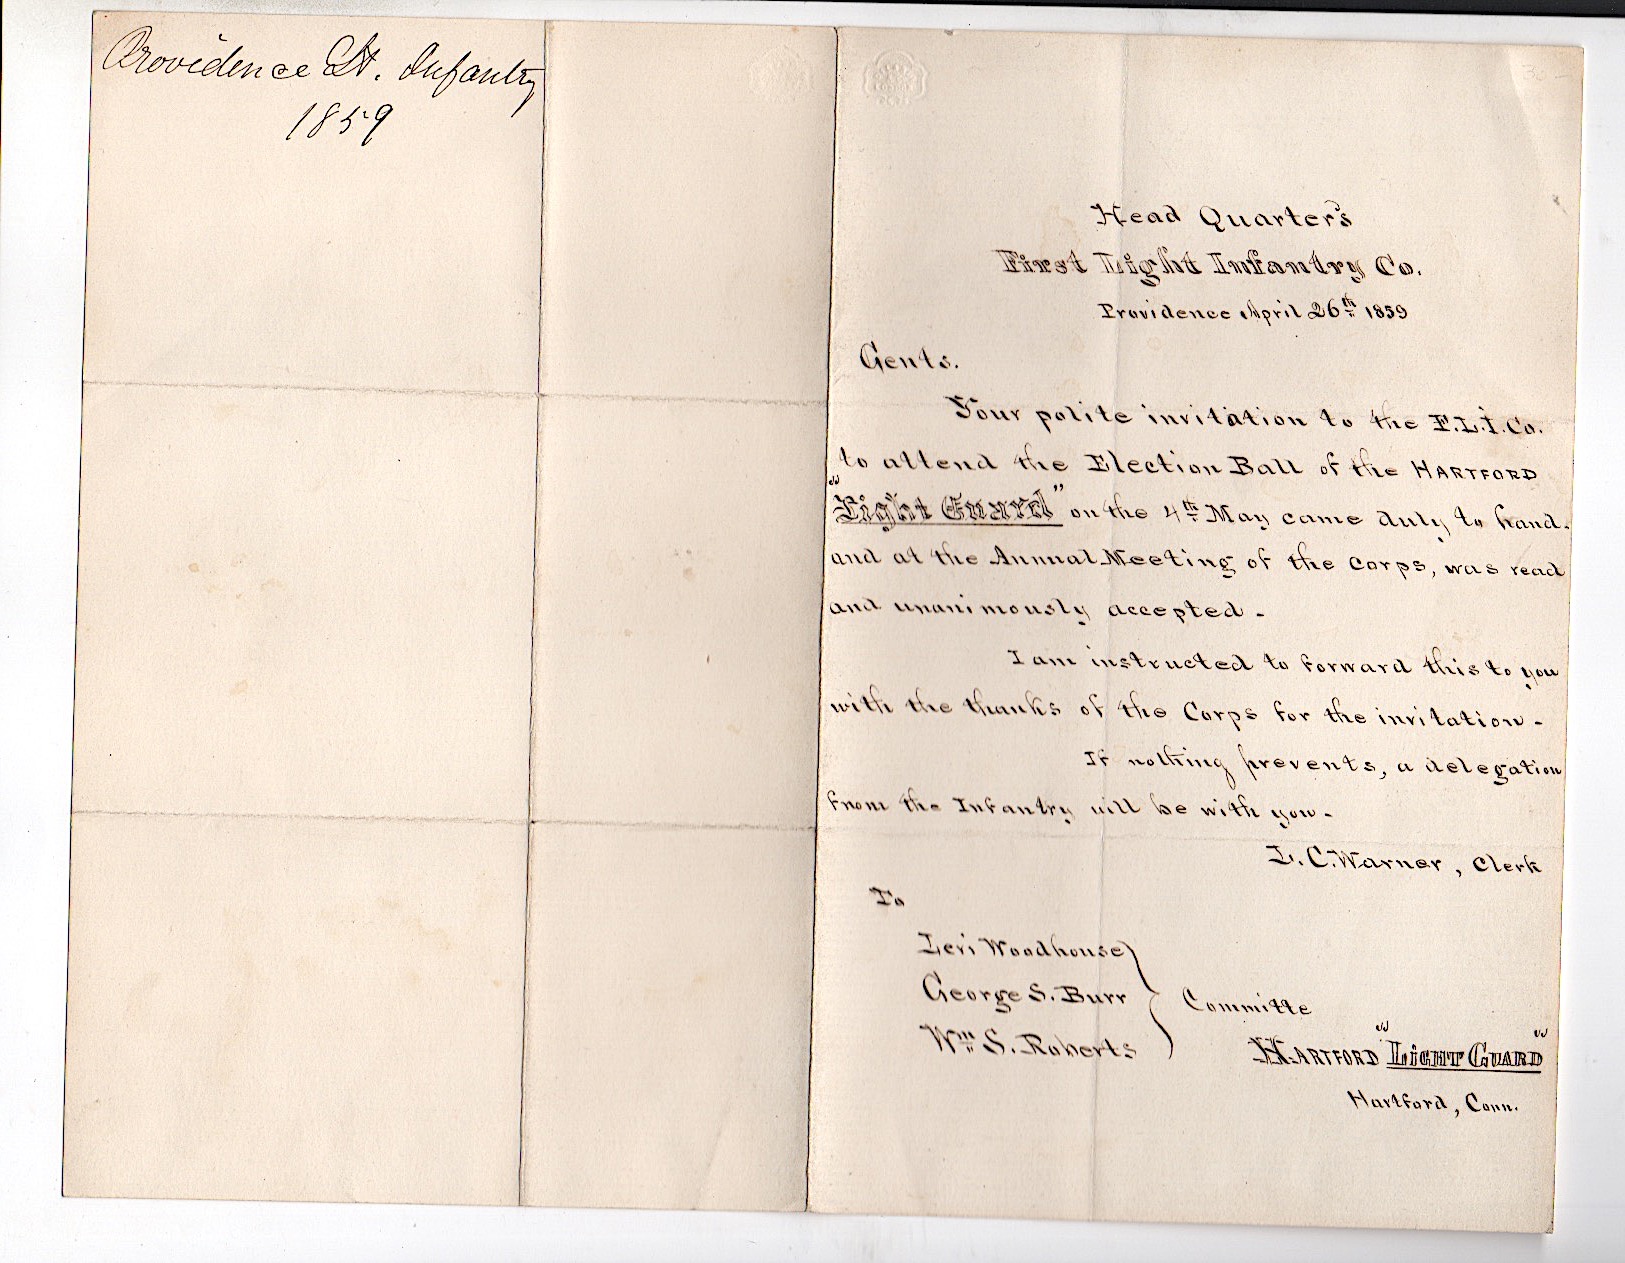 Providence Lt. Infantry
1859
Head Quarter's
First Light Infantry Co.
Providence April 26th 1859
Gents.
Your polite invitation to the F.L.I. Co.
to attend the Election Ball of the HARTFORD
"Light Guard" on the 4th May came duly to hand.
and at the Annual Meeting of the Corps, was read
and unanimously accepted -
I am instructed to forward this to you
with the thanks of the Corps for the invitation -
If nothing prevents, a delegation
from the Infantry will be with you -
L. C. Warner, Clerk
To
Levi Woodhouse
George S. Burr
Wm S. Roberts
Committe
HARTFORD "LIGHT GUARD"
Hartford, Conn.